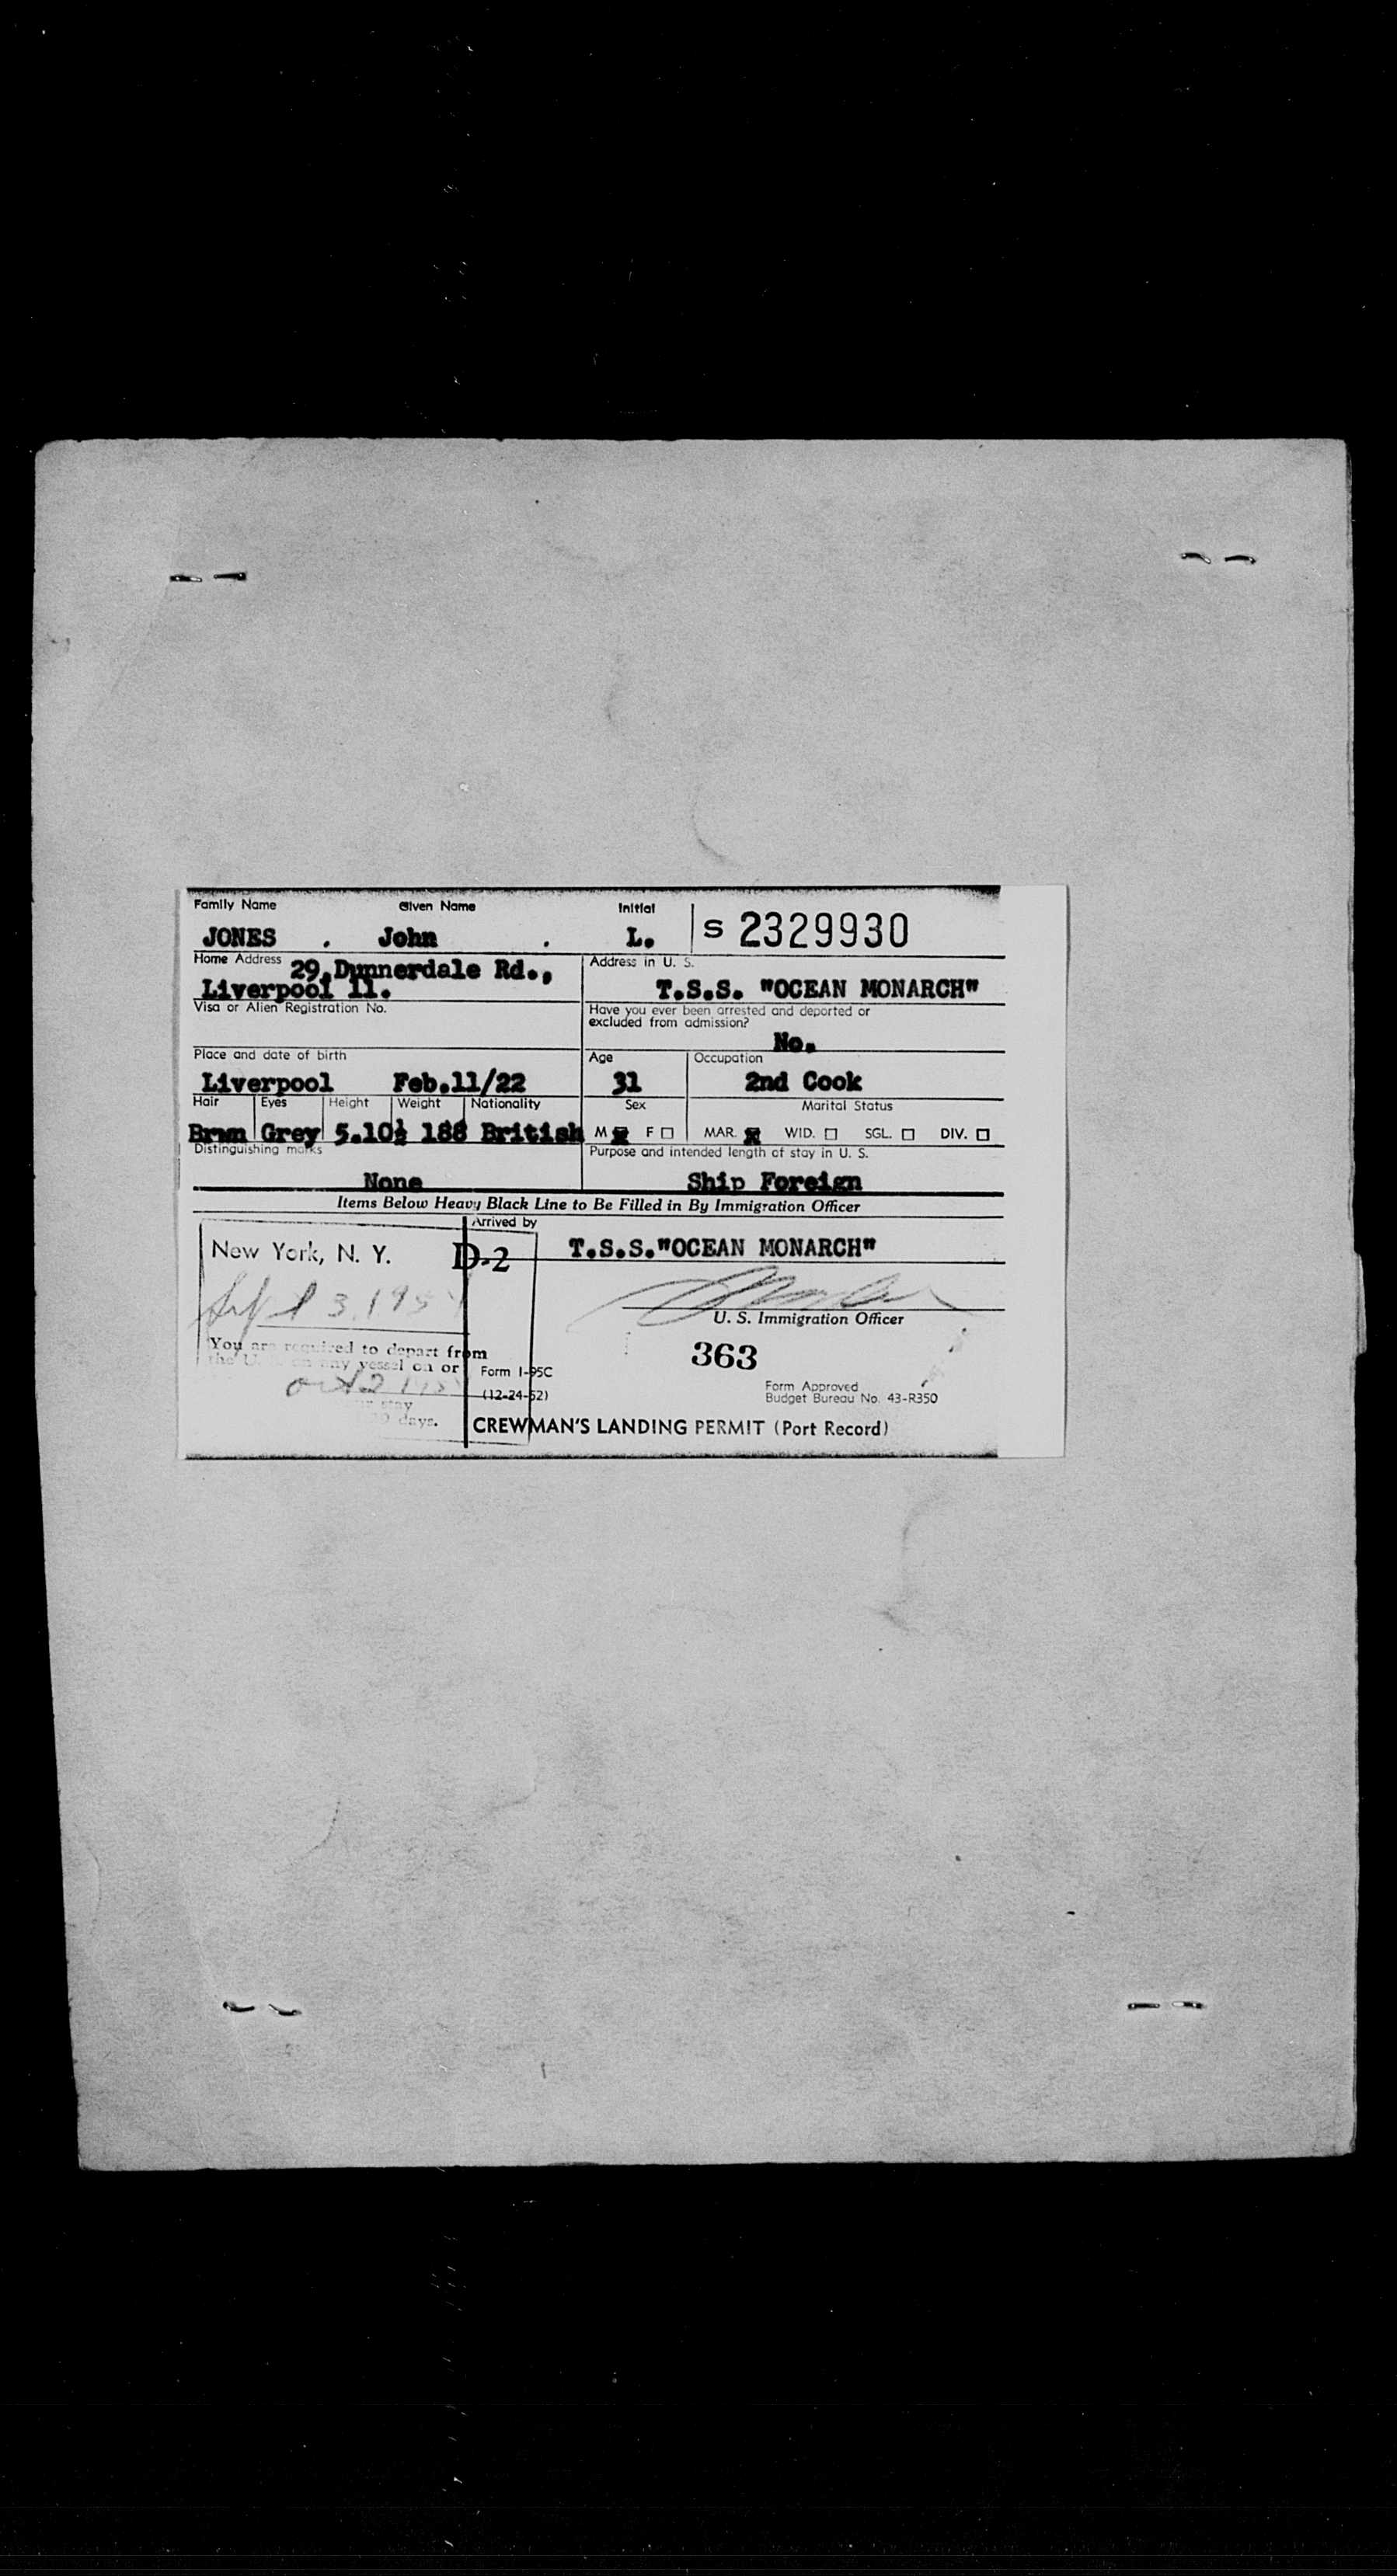 Family Name Given Name Initial
JONES . John . L. S 2329930
Home Address 29,Dunnerdale Rd.,
Liverpool 11.
Address in U. S.
T.S.S. "OCEAN MONARCH"
Visa or Alien Registration No.
Have you ever been arrested and deported or
excluded from admission?
No.
Place and date of birth
Liverpool Feb.11/22
Age
31
Occupation
2nd Cook
Hair Eyes Height Weight Nationality
Brwn Grey 5.10½ 188 British
Sex
M F
Marital Status
MAR. WID. SGL. DIV.
Distinguishing marks
None
Purpose and intended length of stay in U. S.
Ship Foreign
Items Below Heavy Black Line to Be Filled in By Immigration Officer
New York, N. Y.
D-2
Arrived by
T.S.S."OCEAN MONARCH"
U. S. Immigration Officer
363
You are required to depart from
any vessel on or
stay
days.
Form I-95C
(12-24-52)
Form Approved
Budget Bureau No. 43-R350
CREWMAN'S LANDING PERMIT (Port Record)